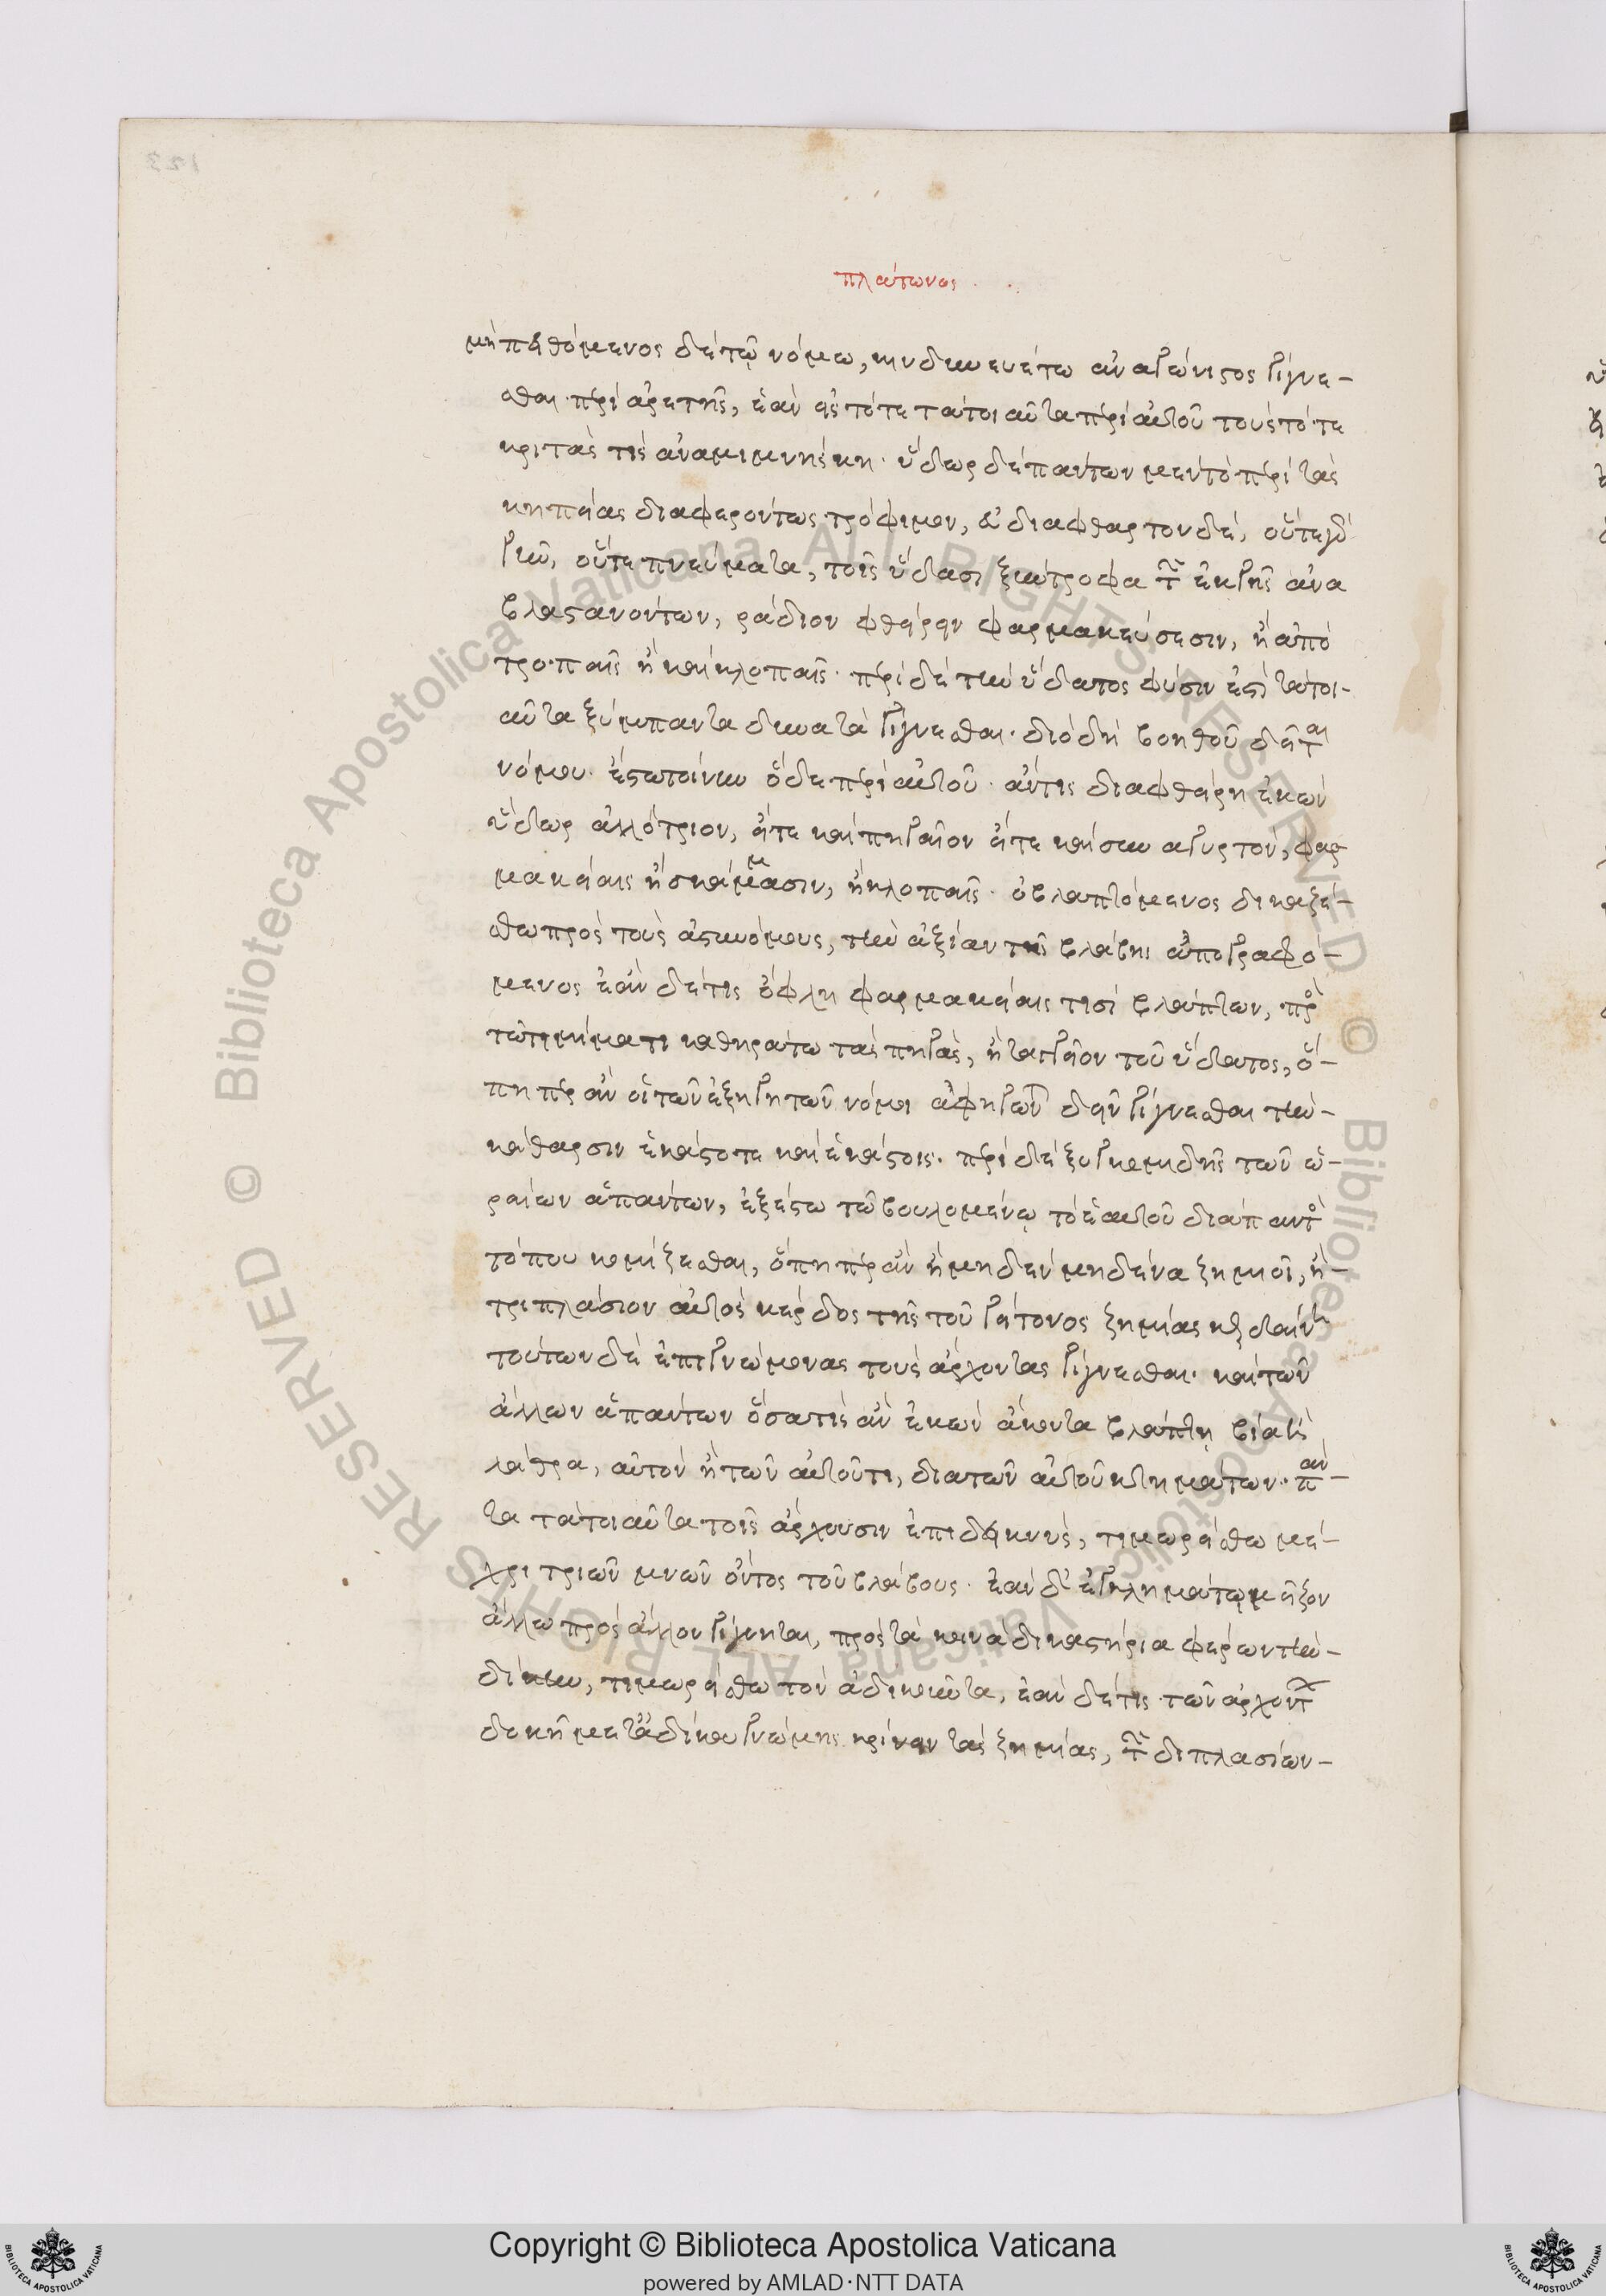 πλάτωνος
μὴ πειθόμενος δὲ τῷ νόμω, κινδυνευέτω ἀναγώνιστος γίγνε-
σθαι περὶ ἀρετῆς, ἐὰν εἰς τότε τὰ τοιαῦτα περὶ αὐτοῦ τοὺς τότε
κριτάς τις ἀναμιμνήσκη. ὕδωρ δὲ πάντων μὲν τὸ περὶ τὰς
κηπείας διαφερόντως τρόφιμον, εὐδιάφθαρτον δέ, οὔτε γὰρ
γῆν, οὔτε πνεύματα, τοῖς ὕδασι ξύντροφα τῶν ἐκ γῆς ἀνα
βλαστανόντων, ράδιον φθείρειν φαρμακεύσεσιν, ἢ ἀπο
τροπαῖς ἢ καὶ κλοπαῖς. περὶ δὲ τὴν ὕδατος φύσιν ἐστὶ τὰ τοι-
αῦτα ξύμπαντα δυνατὰ γίγνεσθαι. διὸ δὴ βοηθοῦ δεῖται
νόμου. ἔστω τοίνυν ὅδε περὶ αὐτοῦ. ἄν τις διαφθείρη ἑκὼν
ὕδωρ ἀλλότριον, εἴτε καὶ πηγαῖον εἴτε καὶ συναγυρτόν, φαρ
μακείαις ἢ σκάμμασιν, ἢ κλοπαῖς. ὁ βλαπτόμενος δικαζέ-
σθω πρὸς τοὺς ἀστυνόμους, τὴν ἀξίαν τῆς βλάβης ἀπογραφό-
μενος ἐὰν δέ τις ὄφλη φαρμακείαις τισὶ βλάπτων, πρὸς
τῶ τιμήματι καθηράτω τὰς πηγὰς, ἢ τἀγγεῖον τοῦ ὕδατος, ὅ-
πη περ ἂν οἱ τῶν ἐξηγητῶν νόμοι ἀφηγῶνται δεῖν γίγνεσθαι τὴν-
κάθαρσιν ἑκάστοτε καὶ ἑκάστοις. περὶ δὲ ξυγκομιδῆς τῶν ὡ-
ραίων ἁπάντων, ἐξέστω τῶ βουλομένῳ τὸ ἑαυτοῦ διὰ παντὸς
τόπου κομίζεσθαι, ὅπη περ ἂν ἢ μηδὲν μηδένα ζημιοῖ, ἢ-
τριπλάσιον αὐτὸς κέρδος τῆς τοῦ γείτονος ζημίας κερδαίνη
τούτων δὲ ἐπιγνώμονας τοὺς ἄρχοντας γίγνεσθαι. καὶ τῶν
ἄλλων ἁπάντων ὅσα τις ἂν ἑκὼν ἄκοντα βλάπτῃ βίᾳ ἢ
λάθρα, αὐτὸν ἢ τῶν αὐτοῦ τι, διὰ τῶν αὐτοῦ κτημάτων. πάν-
τα τὰ τοιαῦτα τοῖς ἄρχουσιν ἐπιδεικνὺς, τιμωρείσθω μέ-
χρι τριῶν μνῶν ὄντος τοῦ βλάβους. ἐὰν δ' ἔγκλημά τῳ μεῖζον
ἄλλω πρὸς ἄλλον γίγνηται, πρὸς τὰ κοινὰ δικαστήρια φέρων τὴν-
δίκην, τιμωρείσθω τὸν ἀδικοῦντα, ἐὰν δέ τις τῶν ἀρχόντων
δοκῆ μετ' ἀδίκου γνώμης κρίνειν τὰς ζημίας, τῶν διπλασίων-
© Biblioteca Apostolica Vaticana ALL RIGHTS RESERVED
© Biblioteca Apostolica Vaticana ALL RIGHTS RESERVED
BIBLIOTECA APOSTOLICA VATICANA
Copyright © Biblioteca Apostolica Vaticana
powered by AMLAD·NTT DATA
BIBLIOTECA APOSTOLICA VATICANA